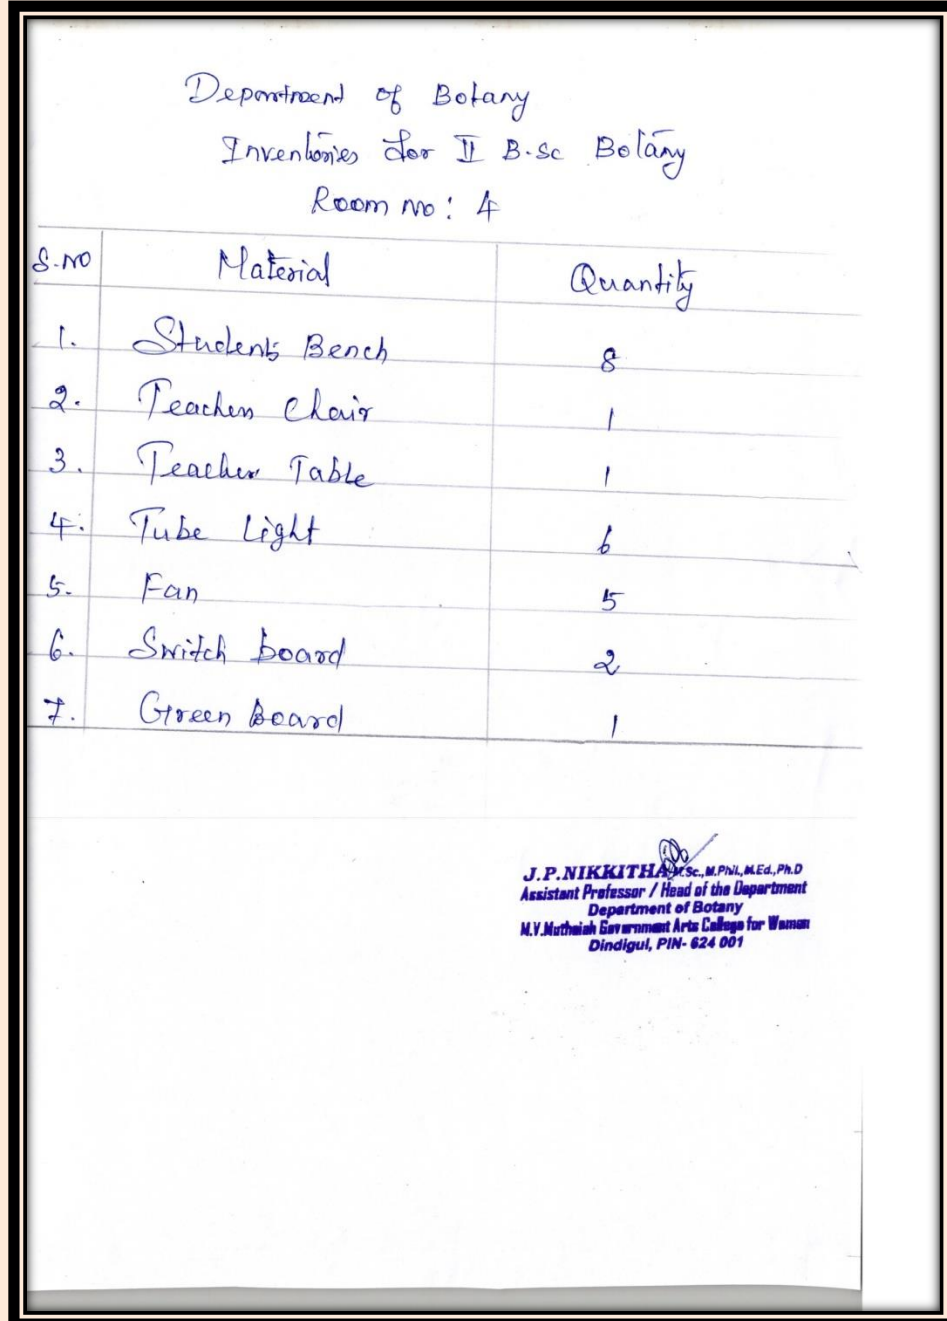 Department of Botany
Inventories for II B.Sc Botany
Room no: 4
S.NO Material Quantity
1. Students Bench 8
2. Teacher Chair 1
3. Teacher Table 1
4. Tube Light 6
5. Fan 5
6. Switch board 2
7. Green Board 1
J.P.NIKKITHA M.Sc.,M.Phil.,M.Ed.,Ph.D
Assistant Professor / Head of the Department
Department of Botany
M.V.Muthaiah Government Arts College for Women
Dindigul, PIN- 624 001